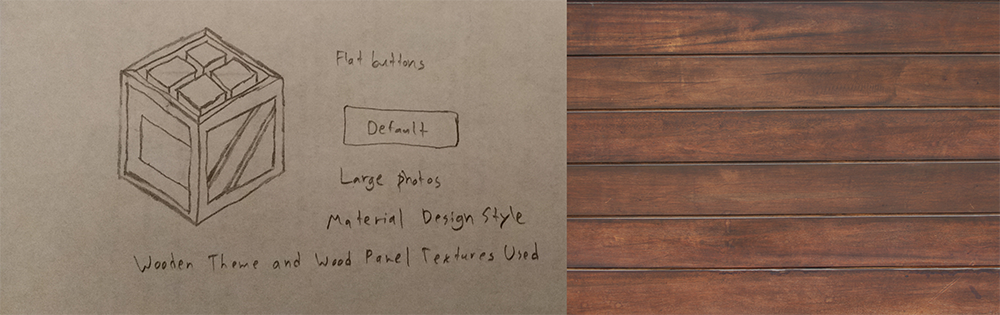 Flat buttons
Default
Large photos
Material Design Style
Wooden Theme and Wood Panel Textures Used